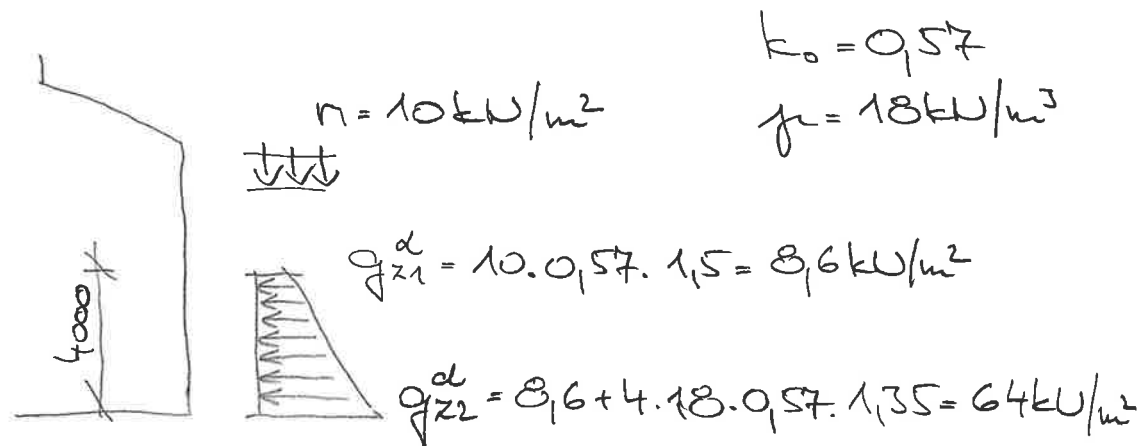 k₀ = 0,57
n = 10 kN/m²
γ = 18 kN/m³
g_z1^d = 10 . 0,57 . 1,5 = 8,6 kN/m²
4000
g_z2^d = 8,6 + 4 . 18 . 0,57 . 1,35 = 64 kN/m²